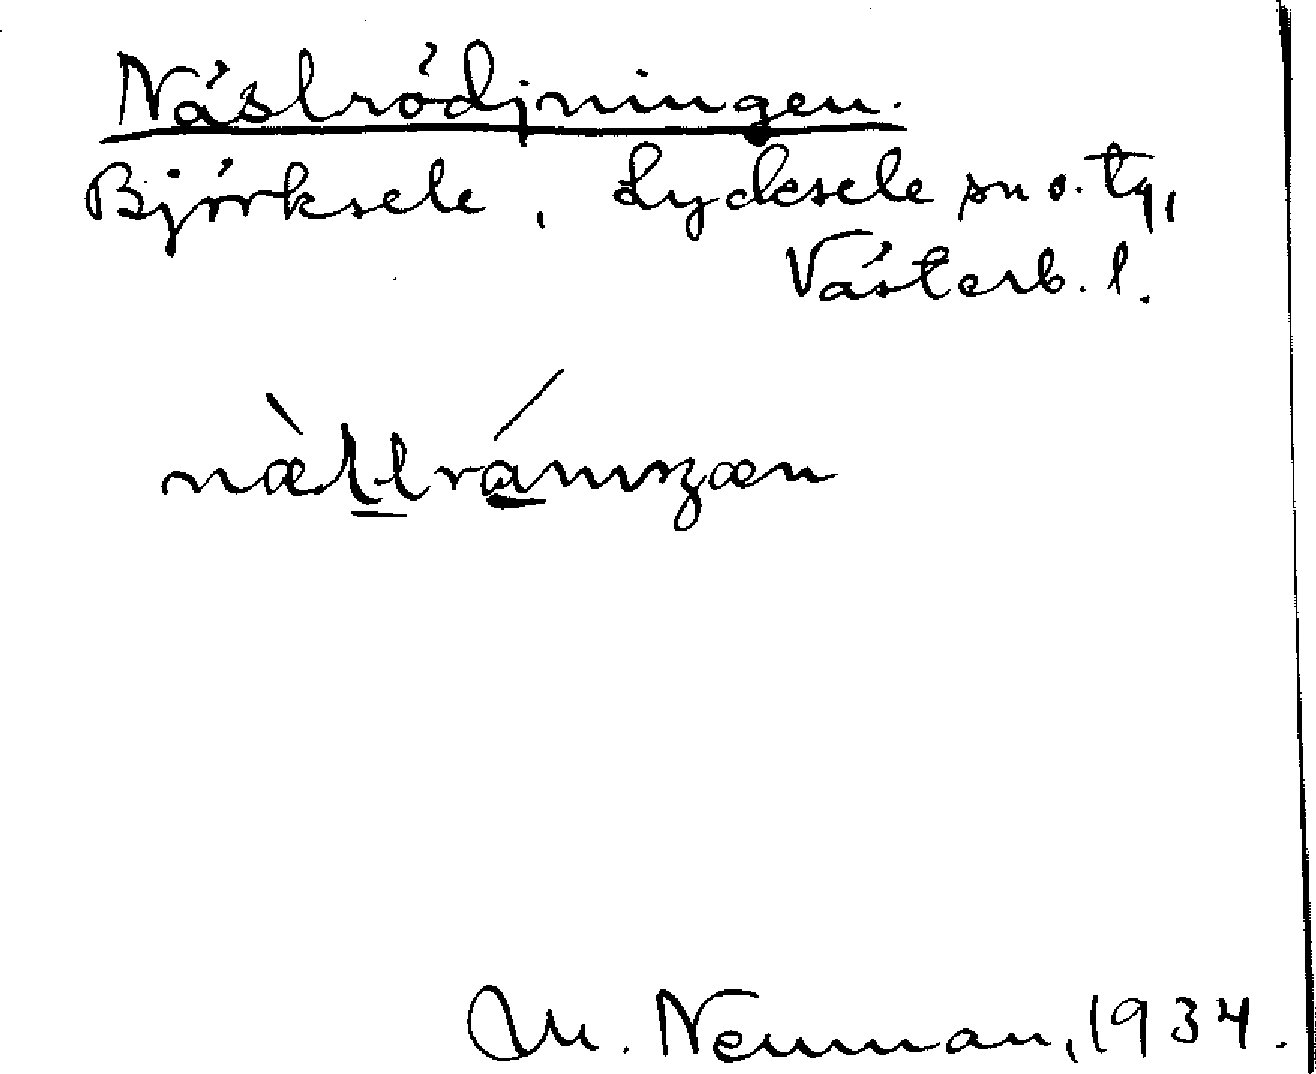 Näslrödjningen.
Björksele, Lycksele sn o. tg,
Västerb. l.
M. Neuman, 1934.